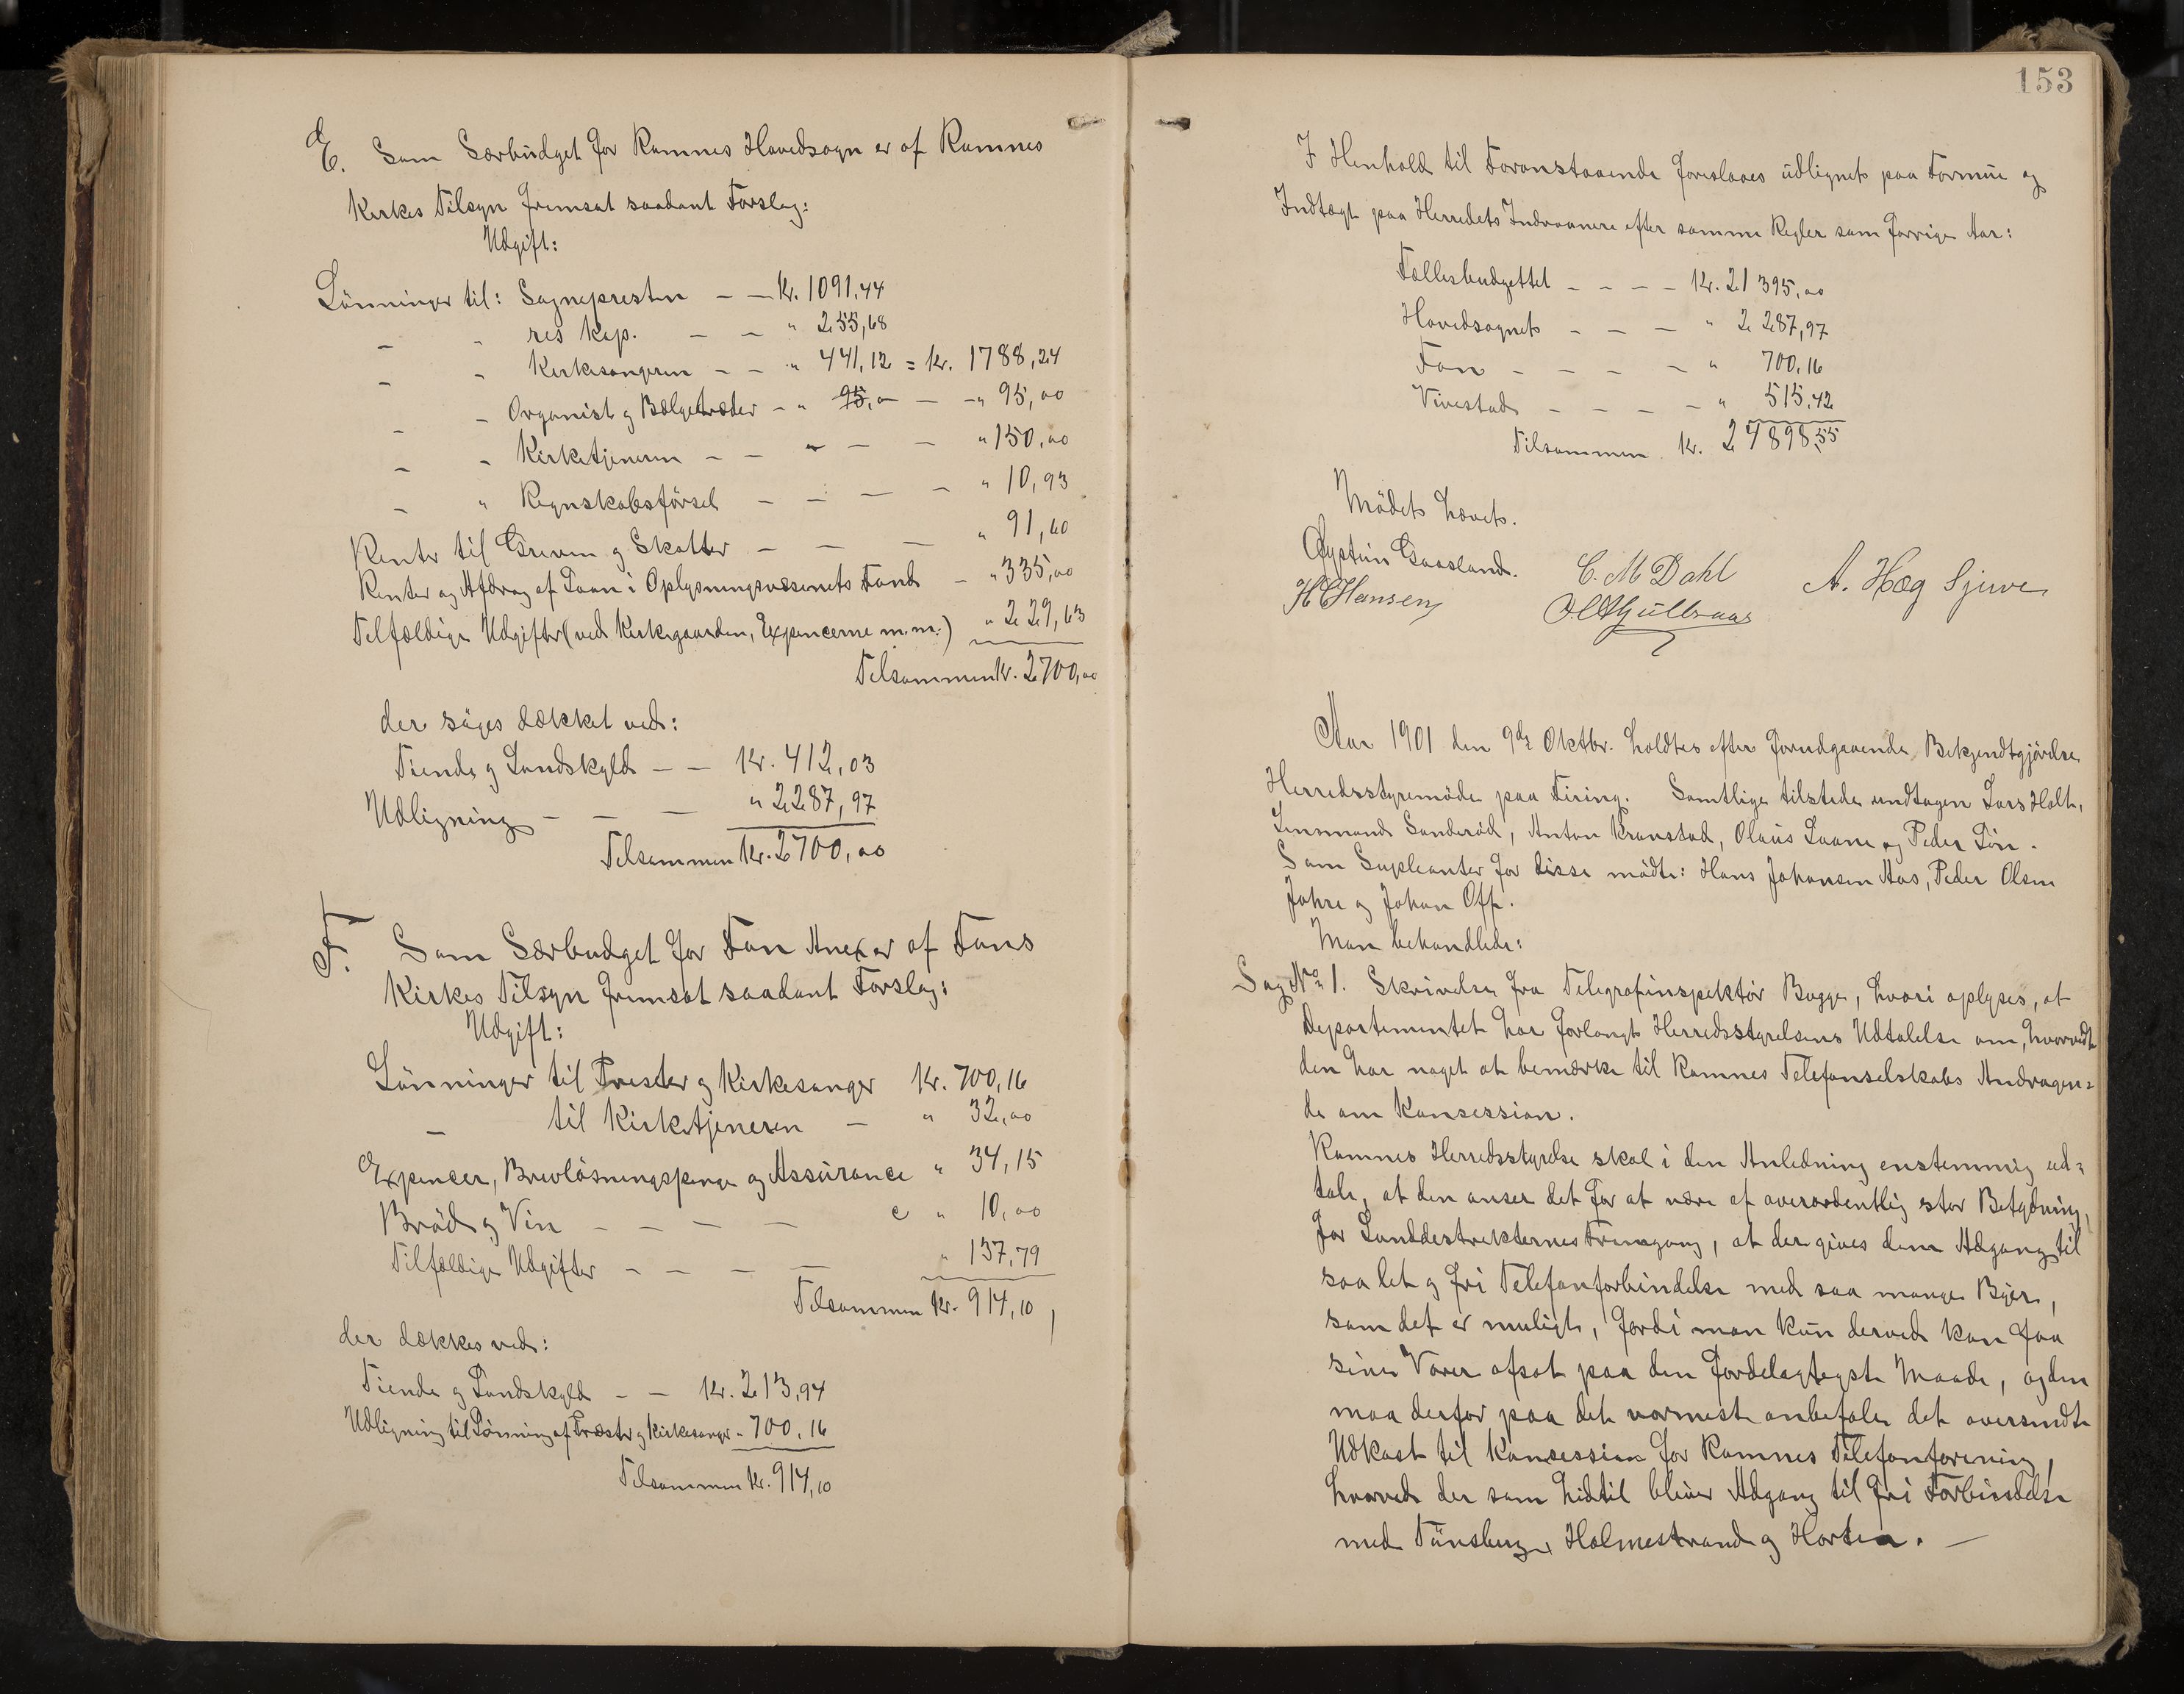 E. Som Særbudget for Ramnes Hovedsogn er af Ramnes
Kirkes Tilsyn fremsat saadant Forslag:
Udgift:
Lönninger til: Sognepresten – – Kr. 1091,44
– " res. kap. – – " 255,68
– " Kirkesangeren – – " 441,12 = Kr. 1788,24
– – Organist og Bælgetræder – " 95,00 – – " 95,00
– " Kirketjeneren – – – – – " 150,00
– " Regnskabsførsel – – – – " 10,93
Renter til Greven og Skatter – – – " 91,60
Renter og Afdrag af Laan i Oplysningsvæsenets Fond – " 335,00
Tilfældige Udgifter (ved Kirkegaarden, Expencerne m.m.) " 229,63
Tilsammen Kr. 2700,00
der söges dækket ved:
Tiende og Landskyld – – Kr. 412,03
Udligning – – – " 2287,97
Tilsammen Kr. 2700,00
F. Som Særbudget for Fon Anex er af Fons
Kirkes Tilsyn fremsat saadant Forslag:
Udgift:
Lönninger til Prester og Kirkesanger Kr. 700,16
– til Kirketjeneren – " 32,00
Expencer, Brevlösningspenge og Assürance " 34,15
Bröd og Vin – – – – " 10,00
Tilfældige Udgifter – – – – " 137,79
Tilsammen Kr. 914,10
der dækkes ved:
Tiende og Landskyld – – Kr. 213,94
Udligning til Lönning af Præster og Kirkesanger " 700,16
Tilsammen Kr. 914,10
153
I Henhold til Foranstaaende foreslaaes üdlignet paa Formüe og
Indtægt paa Herredets Indvaanere efter samme Regler som forrige Aar:
Fællesbudgettet – – – – Kr. 21 395,00
Hovedsognet – – – " 2 287,97
Fon – – – – " 700,16
Vivestad – – – – " 515,42
Tilsammen Kr. 24 898,55
Mödet hævet.
Øystein Gaasland. C. M Dahl A. Hæg Sjuve
H C Hansen
Aar 1901 den 9de Oktbr. holdtes efter forudgaaende Bekjendtgjördelse
Herredsstyremöde paa Firing. Samtlige tilstede undtagen Lars Holt,
Lensmand Sanderöd, Anton Kranstad, Olaüs Laane og Peder Lön.
Som Supleanter for disse mödte: Hans Johansen Aas, Peder Olsen
Jahre og Johan Off.
Man behandlede:
Sag No 1. Skrivelse fra Telegrafinspektör Bugge, hvori oplyses, at
Departementet har forlangt Herredsstyrelsens Udtalelse om, hvorvidt
den har noget at bemærke til Ramnes Telefonselskabs Andragen=
de om Konsession.
Ramnes Herredsstyrelse skal i den Anledning enstemmig ud=
tale, at den anser det for at være af overordentlig stor Betydning,
for Landdestrikternes Fremgang, at der gives dem Adgang til
saa let og fri Telefonforbindelse med saa mange Byer,
som det er muligt, fordi man kün derved kan faa
sine Varer afsat paa den fordelagtegste Maade, og den
maa derfor paa det varmeste anbefale det oversendte
Udkast til Konsession for Ramnes Telefonforening,
hvorved der som hidtil bliver Adgang til fri Forbindelse
med Tönsberg, Holmestrand og Horten. –